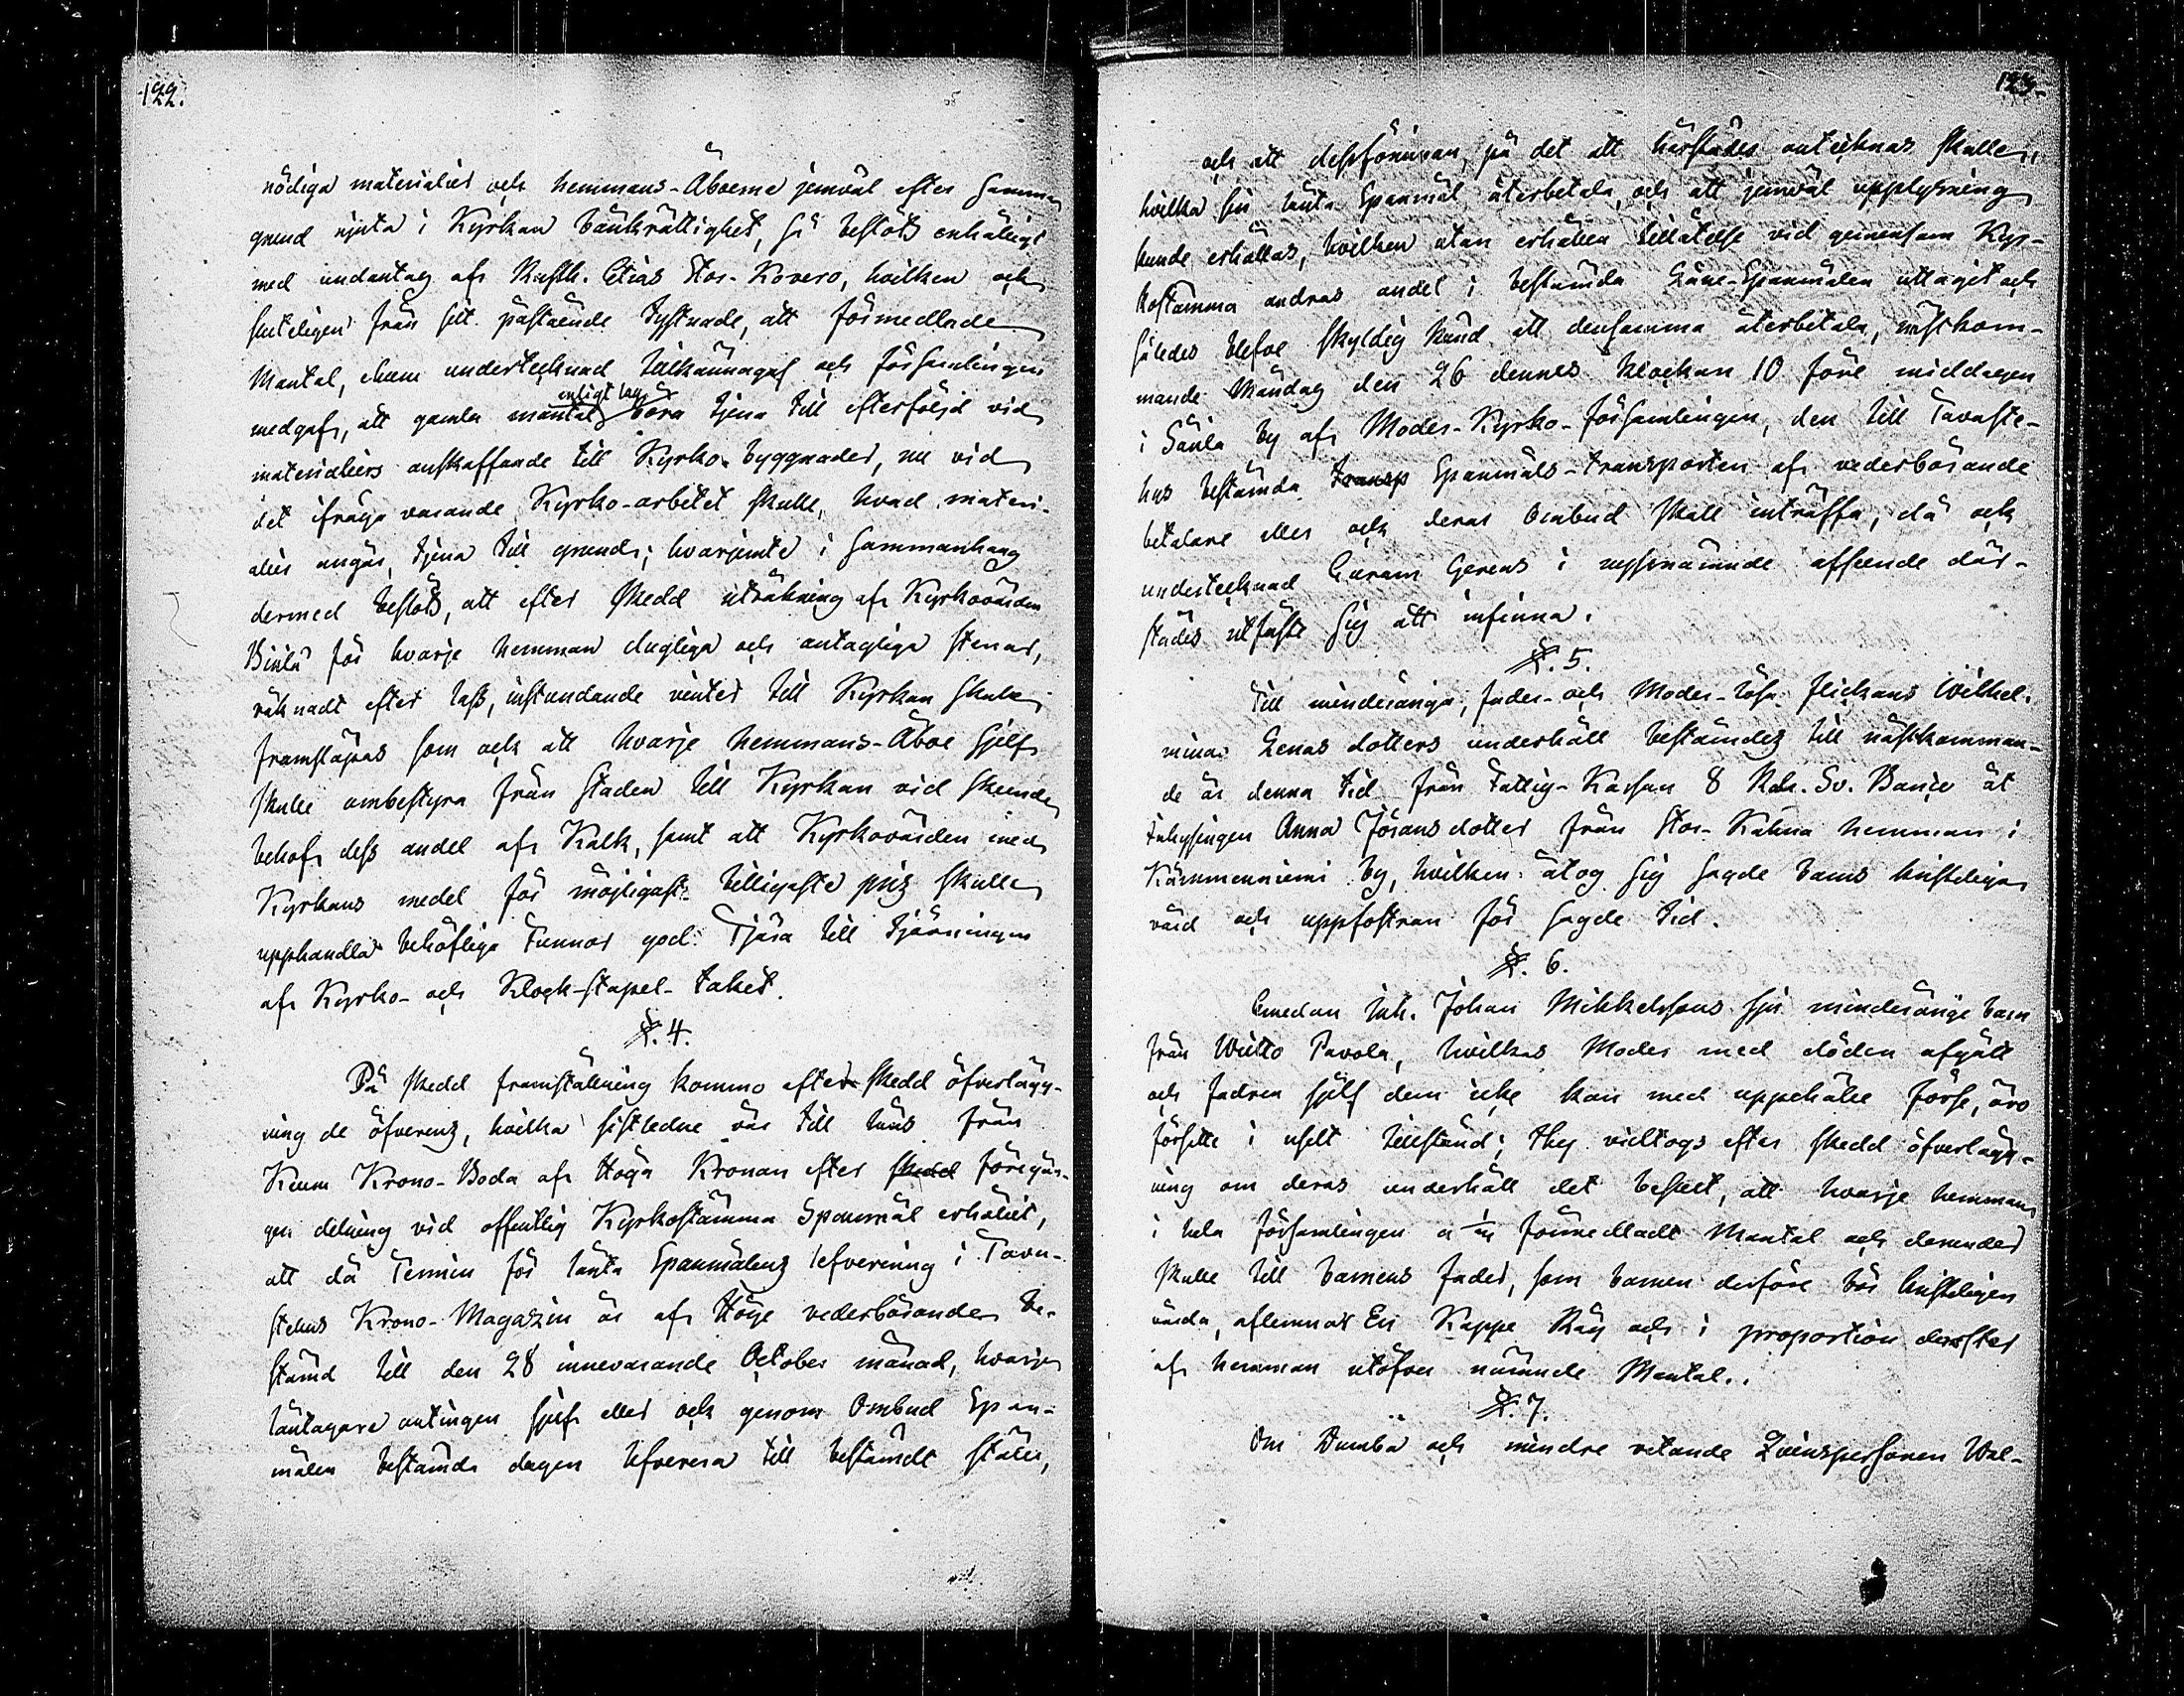 122.
nödiga materialier och hemmans-Åboerne jemväl efter samma
grund njuta i Kyrkan bänkrättighet, så beslöts enhälligt
med undantag af Rusth. Elias Stor-Kovero, hvilken och
sluteligen från sitt påstående tystnade, att förmedlade
Mantal, ehum undertecknad tillkännagaf och församlingen
enligt lag
medgaf, att gamla mantal böra tjena till efterföljd vid
materialiers anskaffande till Kyrko-byggnader, nu vid
det ifråga varande Kyrko-arbetet skulle, hvad materi-
alier angår, tjena till grund; hvarjemte i sammanhang
dermed beslöts, att efter skedd uträkning af Kyrkovärden
för hvarje hemman dugliga och antagliga stenar,
räknadt efter lass, instundande vinter till Kyrkan skulle
framsläpas som och att hvarje hemmans-Åboe sjelf
skulle ombestyra från staden till Kyrkan vid skeende
behof dess andel af Kalk, samt att Kyrkovärden med
Kyrkans medel för möjligast billigaste pris skulle
upphandla behöfliga Tunnor god Tjära till tjärningen
af Kyrko- och Klock-stapel-taket.
§. 4.
På skedd framställning kommo efter skedd öfverlägg-
ning de öfverens, hvilka sistledne vår till låns från
Keum Krono-Boda af Höga Kronan efter skedd föregån-
gen delning vid offentlig Kyrkostämma Spanmål erhållit,
att då Termin för lånta Spanmålens lefverering i Tava-
stehus Krono-Magazin är af Höge vederbörande be-
stämd till den 28 innevarande October månad, hvarje
låntagare antingen sjelf eller och genom Ombud Span-
målen bestämda dagen lefverera till bestämdt ställe,
123.
och att dessförinnan, på det att härstädes antecknas skulle,
hvilka sin lånta Spanmål återbetala, och att jemväl upplysning
kunde erhållas, hvilken utan erhållen tillåtelse vid gemensam Kyr-
kostämma andras andel i bestämda Låne-Spanmålen uttagit och
således blefve skyldig känd att densamma återbetala, nästkom-
mande Måndag den 26 dennes klockan 10 före middagen
i Saula by af Moder-Kyrko-församlingen, den till Tavaste-
hus bestämda transp Spanmåls-transporten af vederbörande
betalare eller och deras Ombud skall inträffa, då och
undertecknad Curam Gerens i nyssnämnde afseende där-
städes utfäste sig att infinna.
§. 5.
Till minderåriga, fader- och Moder-lösa flickans Wilhel-
mina Lenas dotters underhåll bestämdes till nästkomman-
de år denna tid från Fattig-Kassan 8 Rdr. Sv. Banco åt
Inhysingen Anna Jörans dotter från Stor- hemman i
Kämmenniemi by, hvilken åtog sig sagde barns kristeliga
vård och uppfostran för sagde tid.
§. 6.
Emedan Inh. Johan Mikkelssons sju minderårige barn
från Pavola, hvilkas Moder med döden afgått
och fadren sjelf dem icke kan med uppehälle förse, äro
försatte i uselt tillstånd; thy vidtogs efter skedd öfverlägg-
ning om deras underhåll det beslut, att hvarje hemman
i hela församlingen a förmedladt Mantal och derunder
skulle till barnens fader, som barnen derföre bör kristeligen
vårda, aflemnas En Kappe Råg och i proportion derefter
af hemman utöfver nämnde Mantal.
§. 7.
Om Dumba och mindre vetande Qvinspersonen Wal-